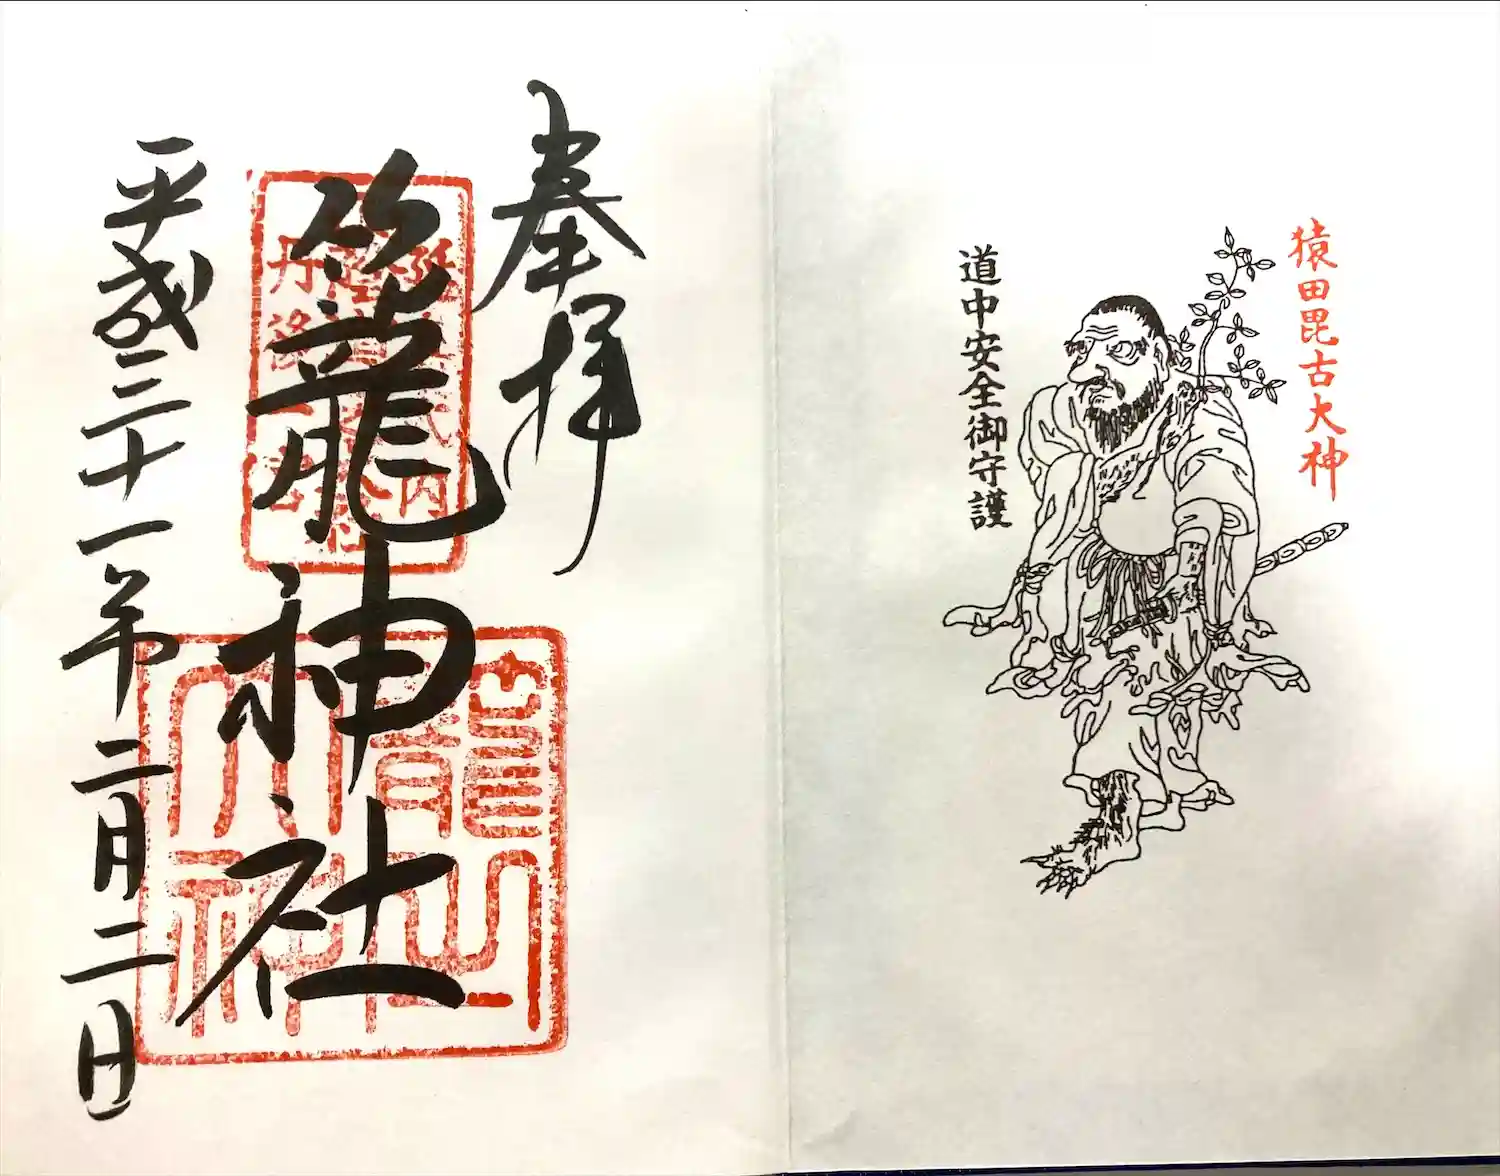 猿田毘古大神
道中安全御守護
奉拝
籠神社
延喜式内
丹後一宮
平成三十一年二月二日